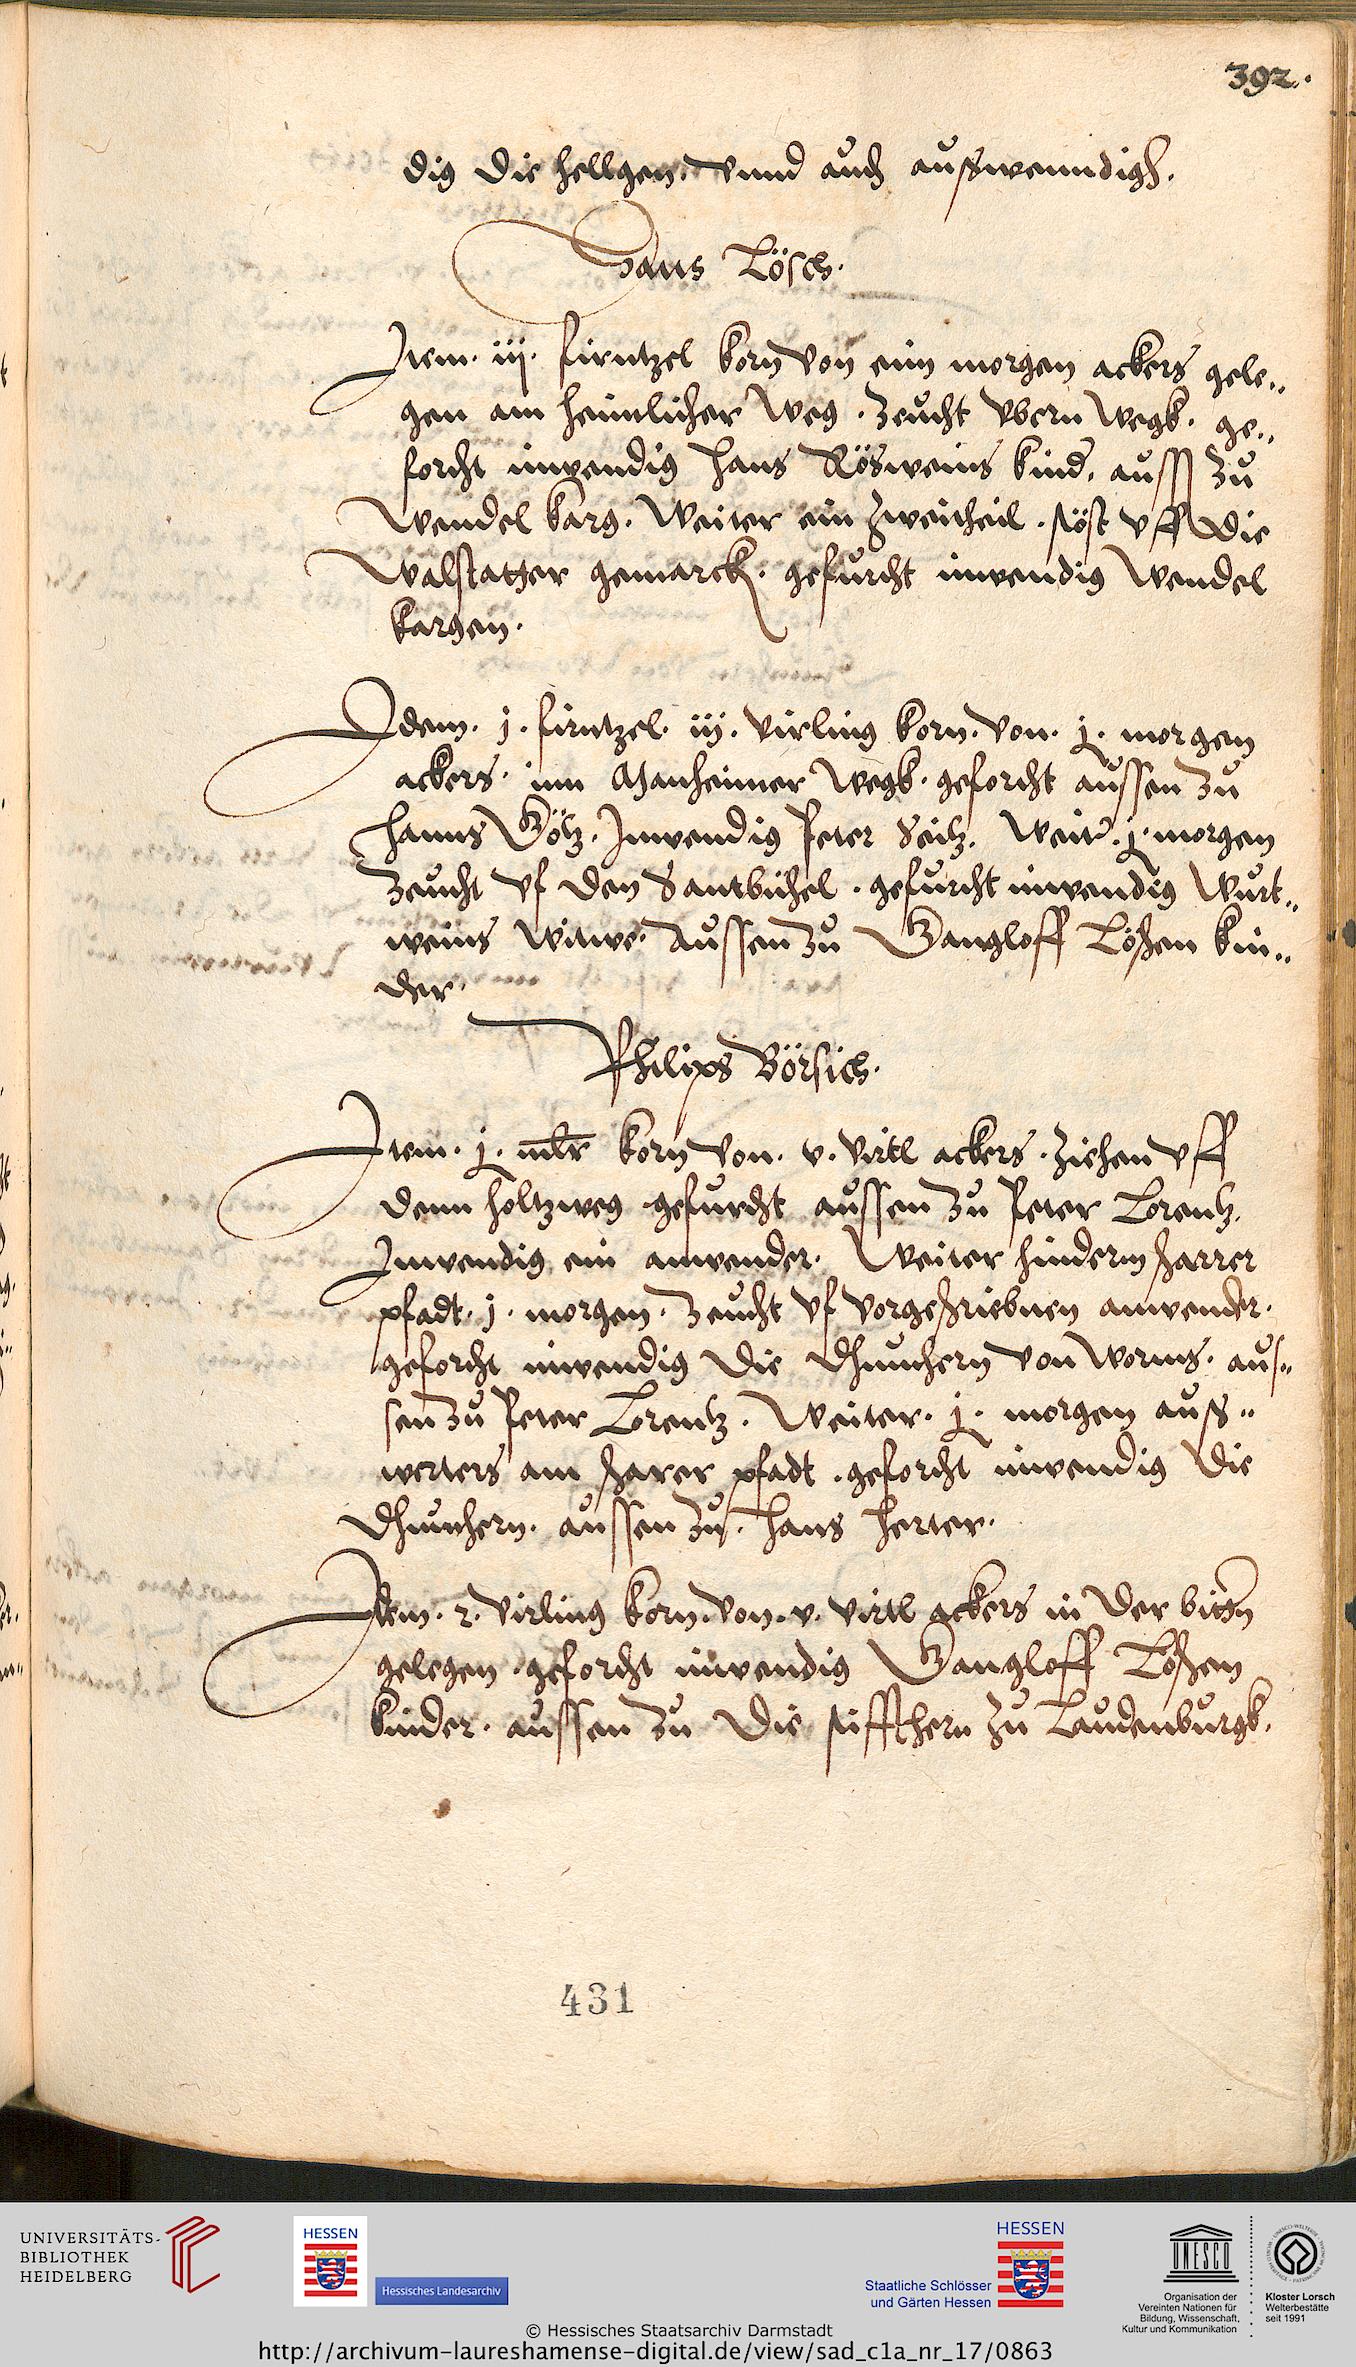 392.
dig die hellgen. vnnd auch außwenndigh.
Hans Lösch.
Item. iij. firntzel korn von eim morgen ackers gele„
gen am heimlicher Weg. Zeucht vbern Wegk. ge„
forcht inwendig Hans Rösweins kind, auss zu
Wendel karg. Weiter ein Zweitheil. stöst vff die
Walstatter gemarck. gefurcht inwendig Wendel
kargen.
Idem. j. firntzel. iij. virling korn. von. j. morgen
ackers. inn Manheimer Wegk. geforcht aussen zu
hanns Götz. Inwendig Peter Seitz. Weiter. j. morgen
Zeucht vf den Santbühel. gefurcht inwendig Wurt„
weins witwe. Aussen zu Gangloff Lößen kin„
der.
Philips Börsich.
Item. j. mlr korn von. v. virtl ackers. ziehen vff
denn holtzweg gefurcht aussen zu Peter Lorentz.
Inwendig ein anwender. Weiter hinderm harrer
pfadt. j. morgen. Zeucht vf vorgeschriebnen anwender.
geforcht inwendig die Dhumhern von Worms. aus„
sen zu Peter Lorentz. Weiter. j. morgen auß„
werters am harer pfadt. geforcht inwendig die
Dhumhern. aussen zu. Hans Herter.
Item. 2. virling korn. von. v. virtl ackers in der bitzen
gelegen. geforcht inwendig Gangloff Lößen
kinder. aussen zu die stiffthern zu Laudenburgk.
431
UNIVERSITÄTS-
BIBLIOTHEK
HEIDELBERG
HESSEN
Hessisches Landesarchiv
HESSEN
Staatliche Schlösser
und Gärten Hessen
UNESCO
Organisation der
Vereinten Nationen für
Bildung, Wissenschaft,
Kultur und Kommunikation
Kloster Lorsch
Welterbestätte
seit 1991
© Hessisches Staatsarchiv Darmstadt
http://archivum-laureshamense-digital.de/view/sad_c1a_nr_17/0863